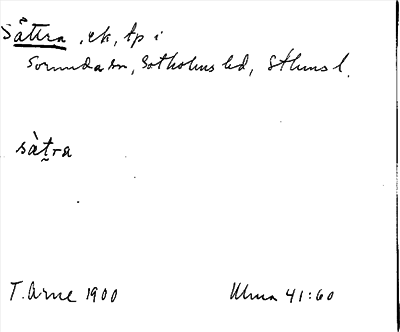 Sättra, ek, tp i
Sorunda sn, Sotholms hd, Sthms l.
sàtra
T. Arne 1900 Ulma 41:60